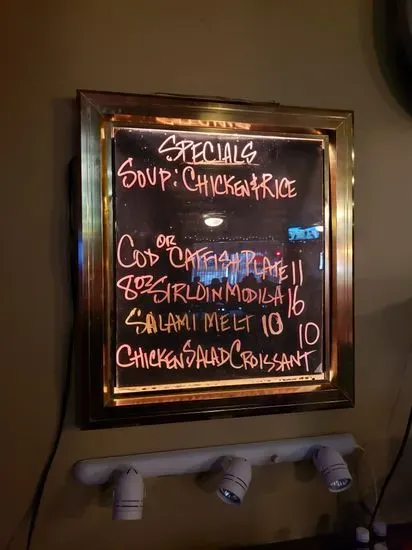 SPECIALS
SOUP: CHICKEN & RICE
COD OR CATFISH PLATE 11
8OZ SIRLOIN MODIGA 16
SALAMI MELT 10
10
CHICKEN SALAD CROISSANT